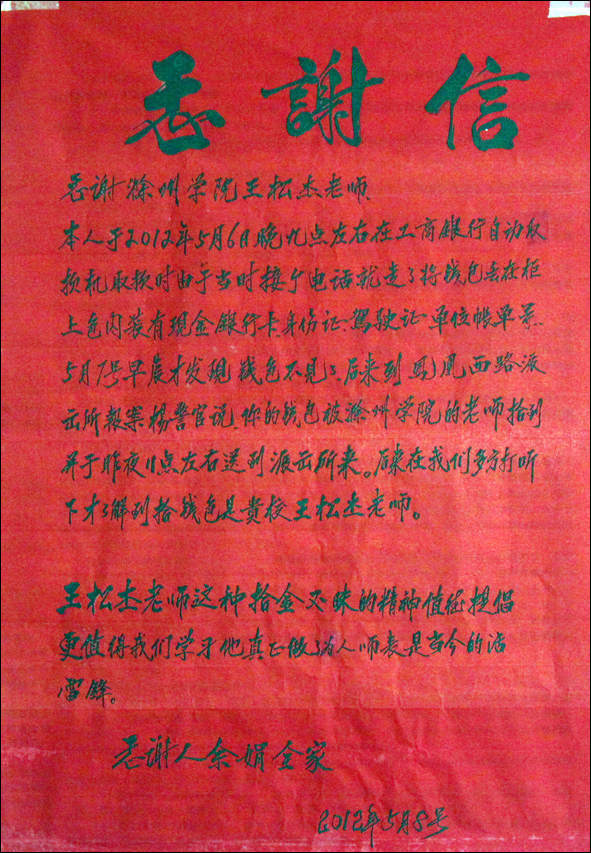 感謝信
感谢滁州学院王松杰老师
本人于2012年5月6日晚九点左右在工商银行自动取
款机取款时由于当时接个电话就走了将钱包丢在柜
上包内装有现金、银行卡、身份证、驾驶证、单位帐单等.
5月7号早晨才发现钱包不见了、后来到凤凰西路派
出所報案楊警官说、你的钱包被滁州学院的老师拾到
并于昨夜11点左右送到派出所来。后来在我们多方打听
下才了解到拾钱包是贵校王松杰老师。
王松杰老师这种拾金不昧的精神值得提倡
更值得我们学习他真正做了为人师表是当今的活
雷锋。
感谢人余娟全家
2012年5月8号